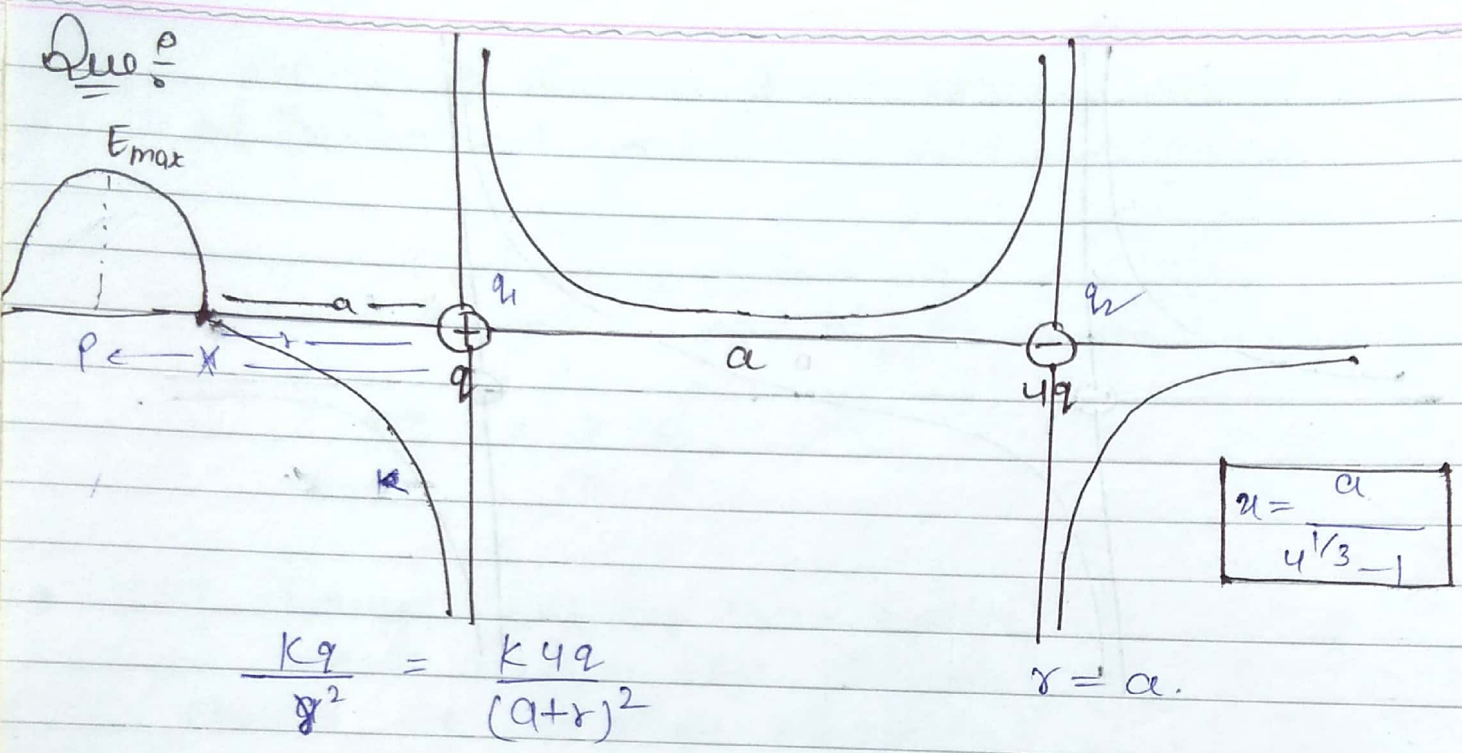 Que:
Emax
a
q1
q2
P ← x
r
q
a
4q
K
x = a / 4^1/3 - 1
Kq / r² = K4q / (a+r)²
r = a.